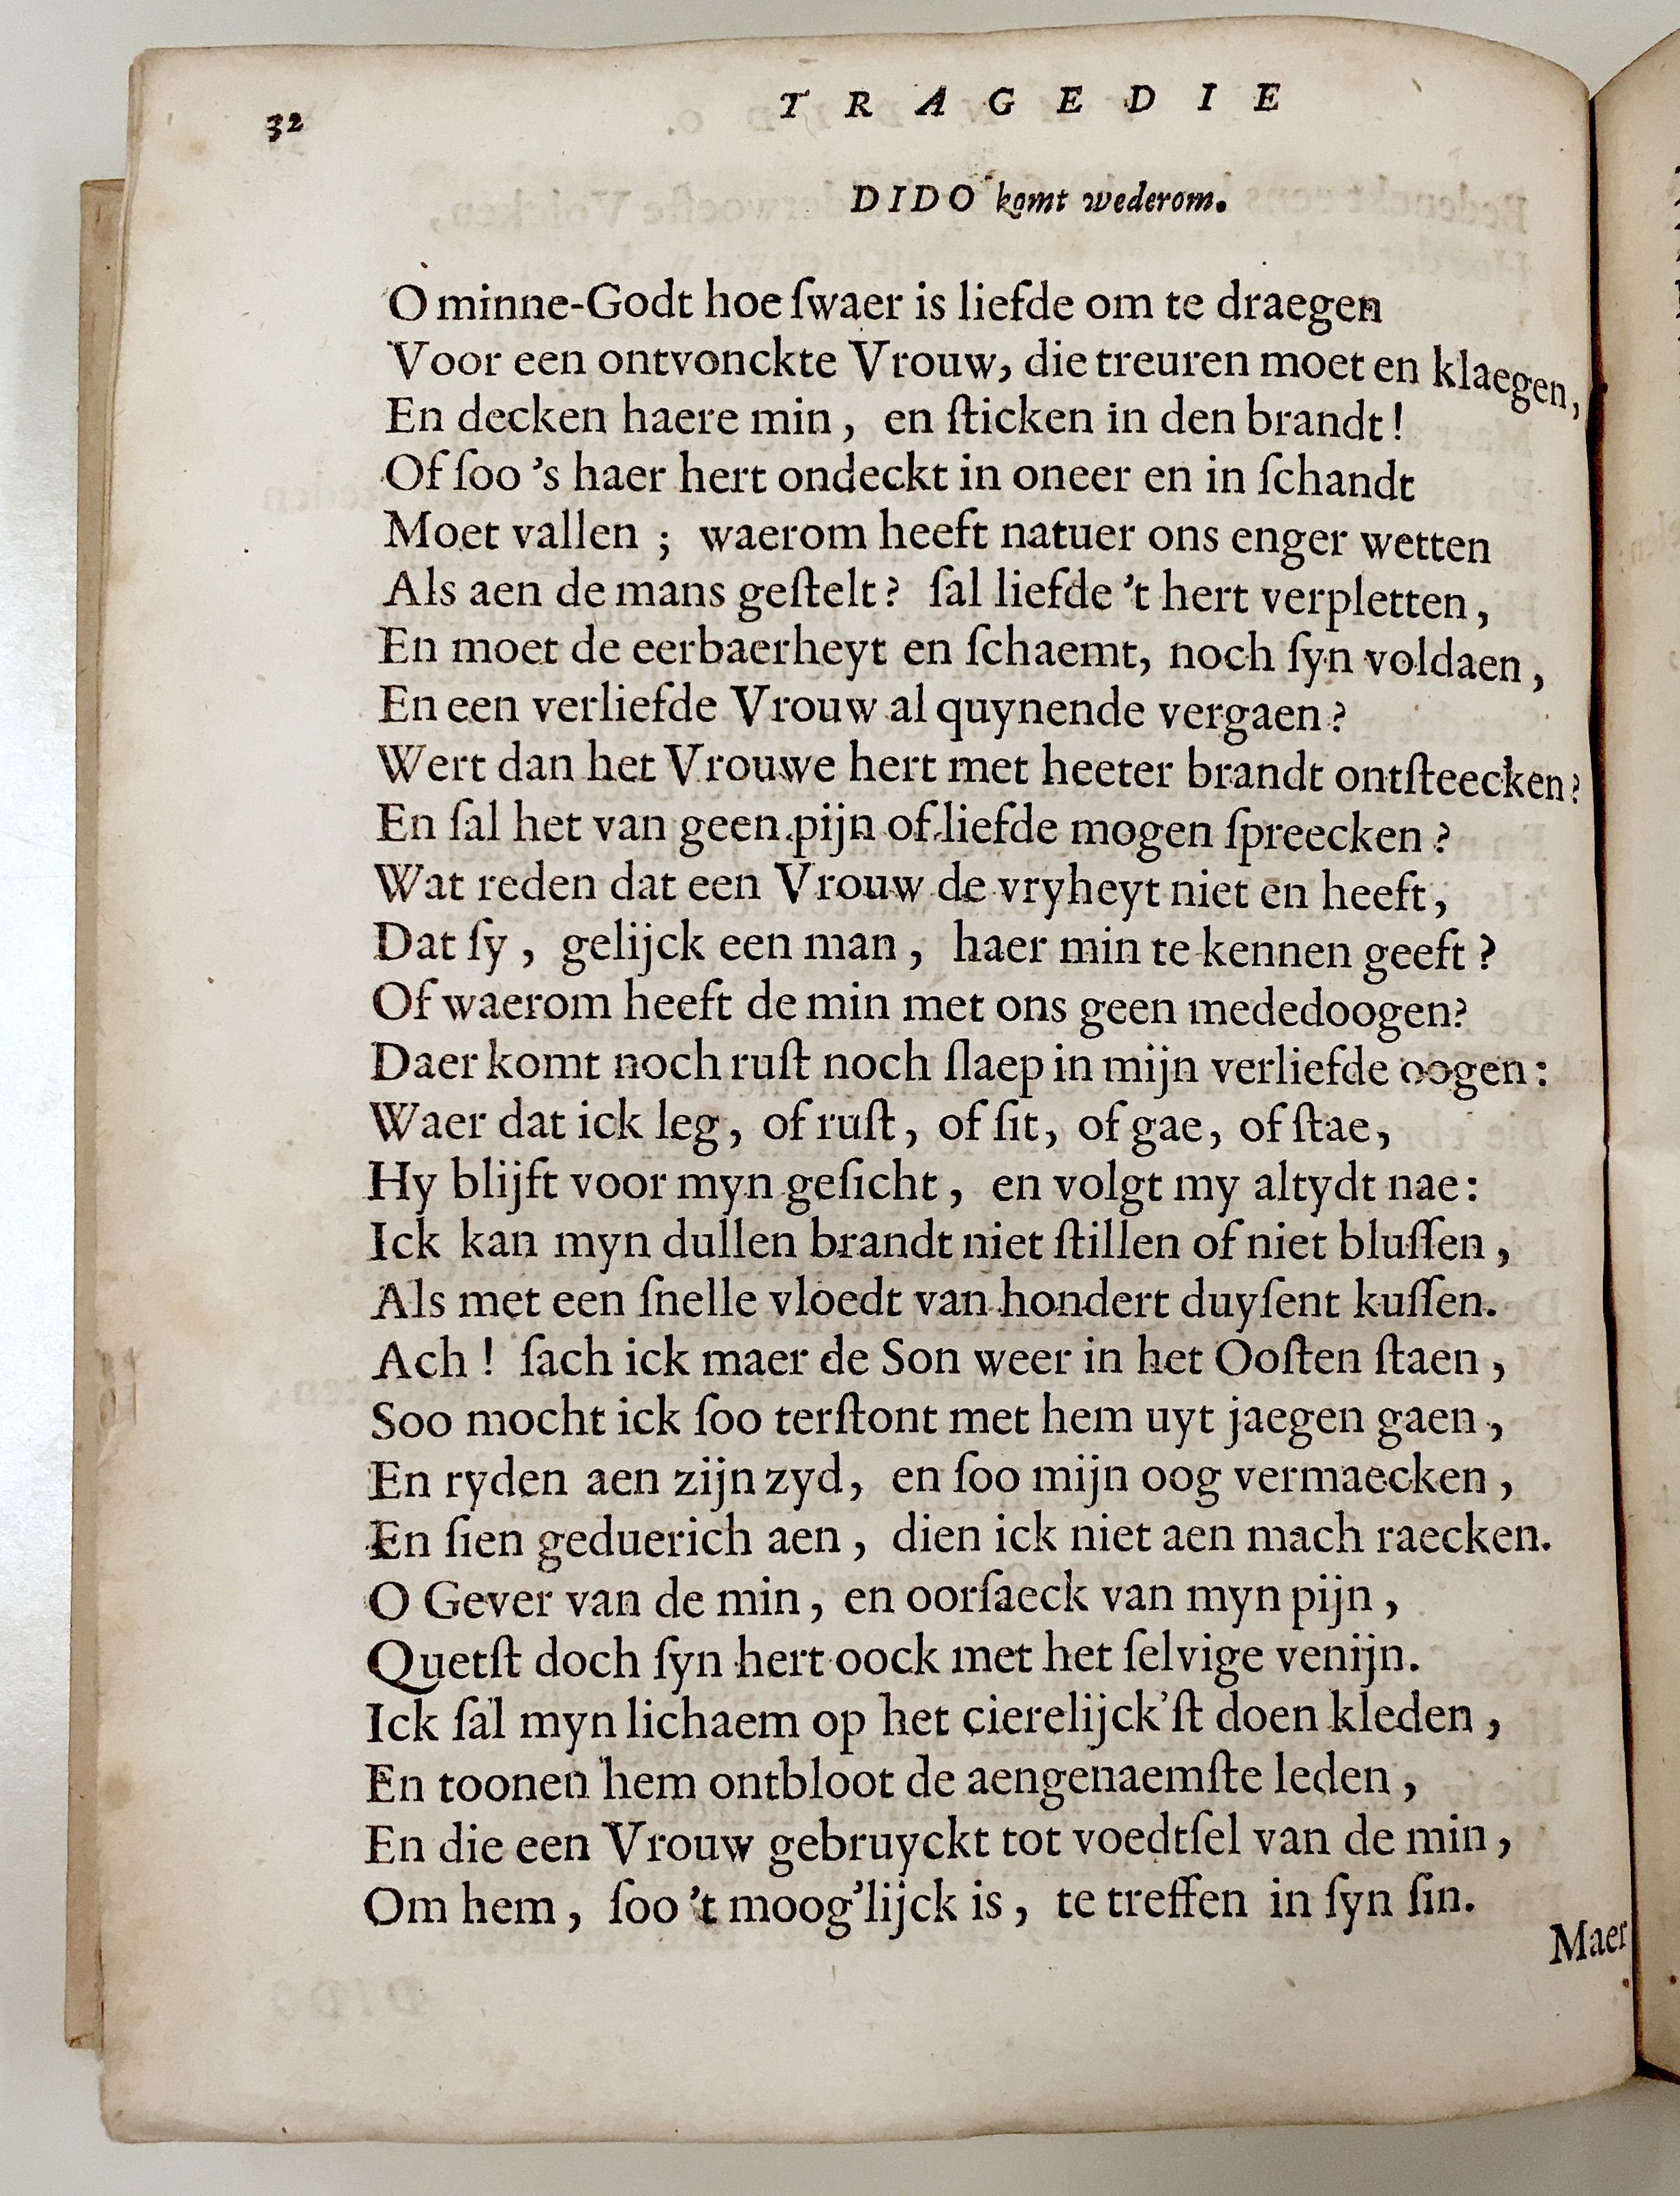 32
TRAGEDIE
DIDO komt wederom.
O minne-Godt hoe ſwaer is liefde om te draegen
Voor een ontvonckte Vrouw, die treuren moet en klaegen,
En decken haere min, en ſticken in den brandt!
Of ſoo 's haer hert ondeckt in oneer en in ſchandt
Moet vallen; waerom heeft natuer ons enger wetten
Als aen de mans geſtelt? ſal liefde 't hert verpletten,
En moet de eerbaerheyt en ſchaemt, noch ſyn voldaen,
En een verliefde Vrouw al quynende vergaen?
Wert dan het Vrouwe hert met heeter brandt ontſteecken?
En ſal het van geen pijn of liefde mogen ſpreecken?
Wat reden dat een Vrouw de vryheyt niet en heeft,
Dat ſy, gelijck een man, haer min te kennen geeft?
Of waerom heeft de min met ons geen mededoogen?
Daer komt noch ruſt noch ſlaep in mijn verliefde oogen:
Waer dat ick leg, of ruſt, of ſit, of gae, of ſtae,
Hy blijft voor myn geſicht, en volgt my altydt nae:
Ick kan myn dullen brandt niet ſtillen of niet bluſſen,
Als met een ſnelle vloedt van hondert duyſent kuſſen.
Ach! ſach ick maer de Son weer in het Ooſten ſtaen,
Soo mocht ick ſoo terſtont met hem uyt jaegen gaen,
En ryden aen zijn zyd, en ſoo mijn oog vermaecken,
En ſien geduerich aen, dien ick niet aen mach raecken.
O Gever van de min, en oorſaeck van myn pijn,
Quetſt doch ſyn hert oock met het ſelvige venijn.
Ick ſal myn lichaem op het cierelijck'ſt doen kleden,
En toonen hem ontbloot de aengenaemſte leden,
En die een Vrouw gebruyckt tot voedtſel van de min,
Om hem, ſoo 't moog'lijck is, te treffen in ſyn ſin.
Maer